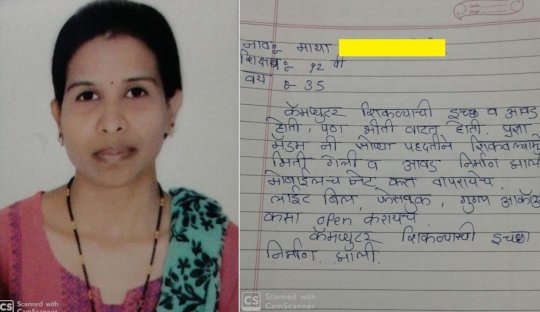 नाव :- माया
शिक्षण :- १२ वी
वय :- 35
कॅम्प्युटर शिकण्याची इच्छा व आवड
होती, पण भीती वाटत होती. पुजा
मॅडम नी सोप्या पद्धतीने शिकवल्यामुळे
भिती गेली व आवड निर्माण झाली
मोबाईलच नेट कस वापरायच
लाईट बिल, फेसबुक, गुगल अकाउंट
कसा open करायच
कॅम्प्युटर शिकण्याची इच्छा
निर्माण झाली.
CS Scanned with
CamScanner
CS Scanned with
CamScanner